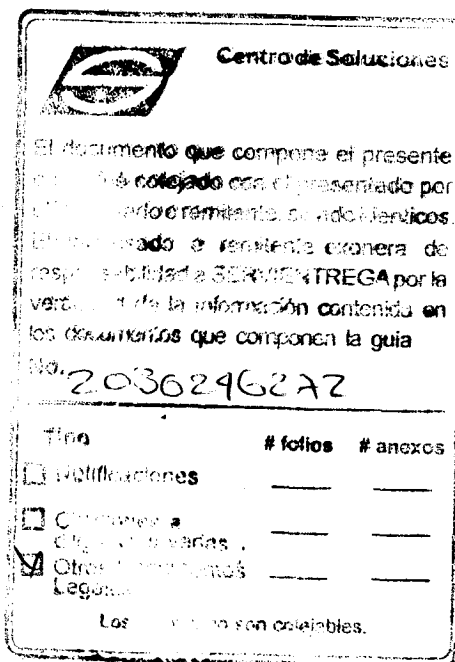 Centro de Soluciones
El documento que compone el presente
cotejado con el presentado por
o remitente, siendo idénticos.
El remitente exonera de
responsabilidad a SERVIENTREGA por la
de la información contenida en
los documentos que componen la guía
No. 2036246272
Tipo # folios # anexos
Notificaciones
a
varias
Otros
Legales
Los no son cotejables.